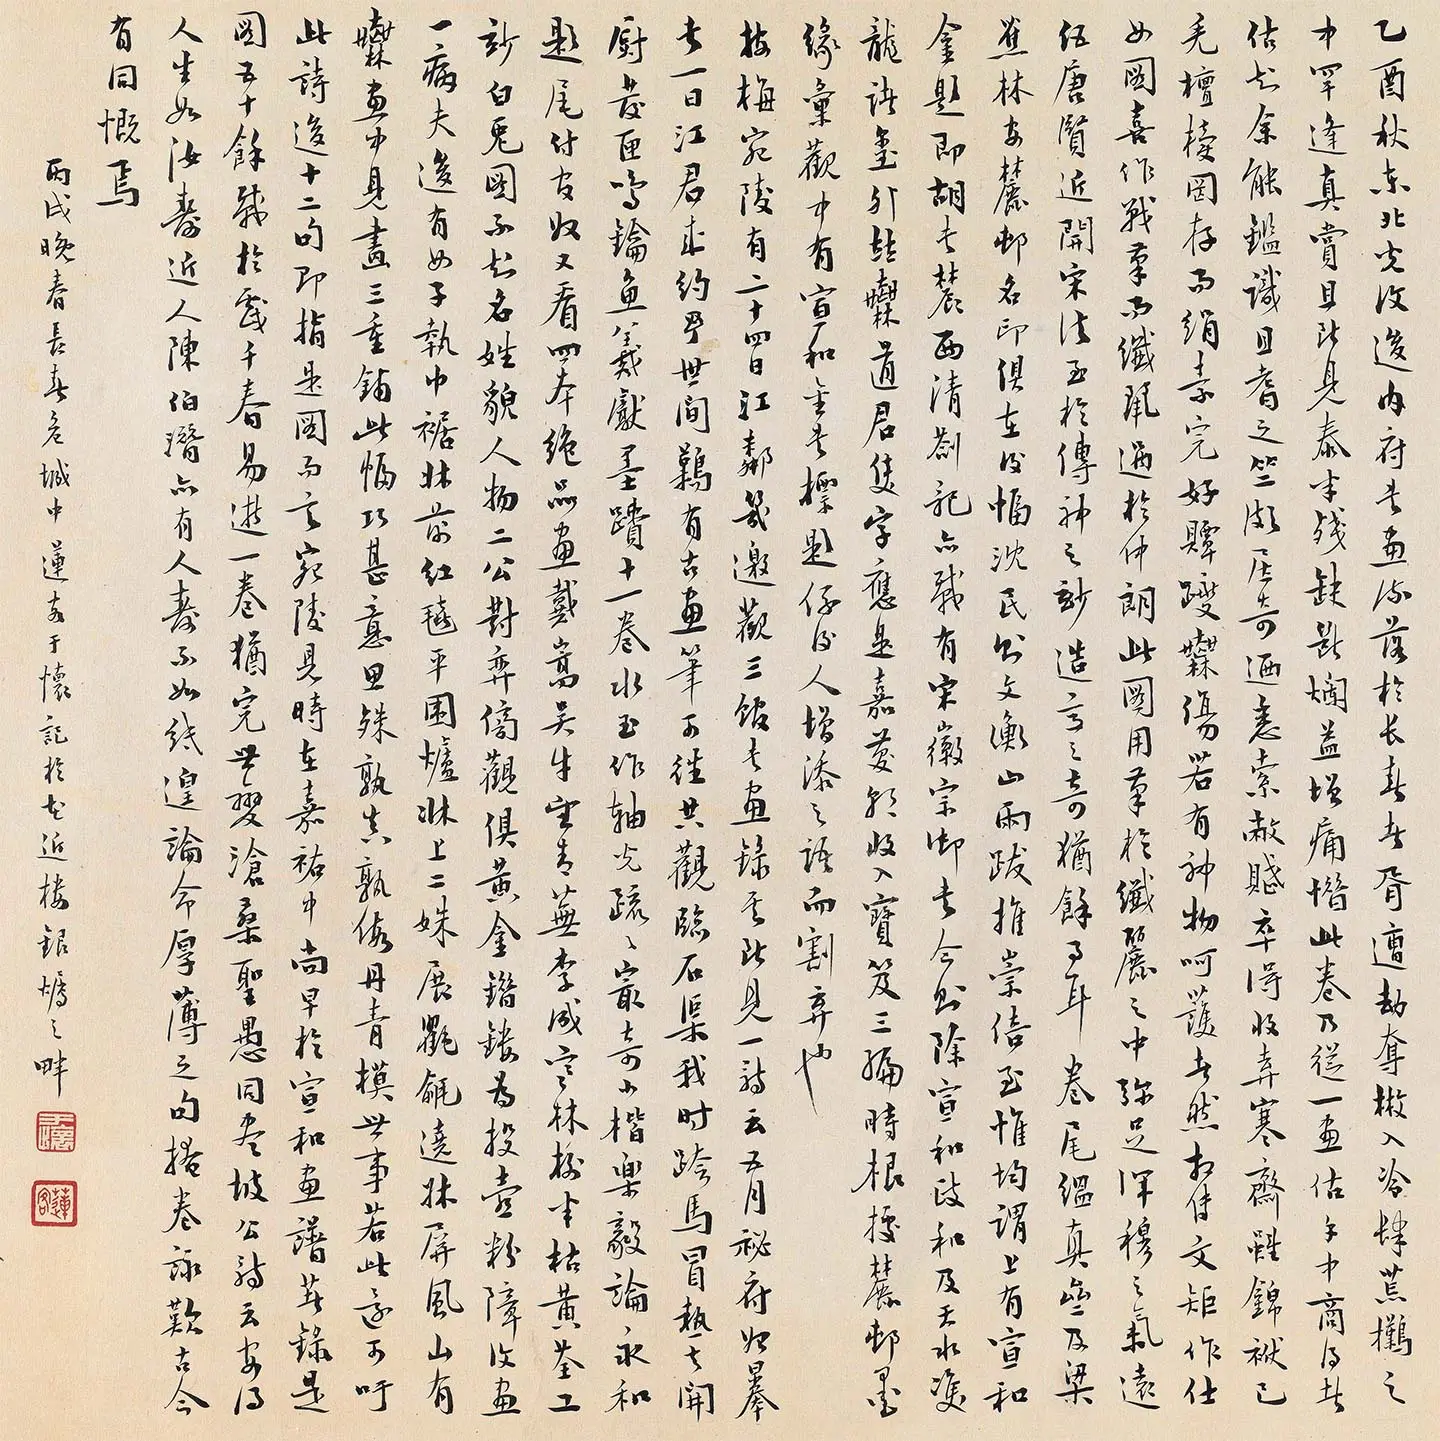 乙酉秋東北光復後內府書畫流落於長春者胥遭劫奪櫢入冷肆荒攤之
中罕逢真賞且所見泰半殘缺斷爛益增痛惜此卷乃從一畫估手中商得者
估知余能鑑識且耆之竺頗居奇迺悉索敝賦卒得收弆寒齋雖錦袱已
毛檀櫝罔存而絹素完好贉躞無傷若有神物呵護者然相傳文矩作仕
女圖喜作戰筆而纖麗過於仲朗此圖用筆於纖麗之中弥足渾穆之氣遠
紹唐賢近開宋法至於傳神之妙造言之奇猶餘事耳卷尾縕真齋及梁
蕉林安麓邨名印俱在後幅沈民則文衡山兩跋推崇倍至惟均謂上有宣和
金題即胡書農西清劄記亦載有宋徽宗御書今則除宣和政和及天水雙
龍諸璽外熟無道君隻字應是嘉慶朝收入寶笈三編時根據麓邨墨
緣彙觀中有宣和金書標題係後人增添之語而割弃也
按梅宛陵有二十四日江鄰幾邀觀三館書畫錄其所見一詩云五月祕府始暴
書一日江君來約予世間難有古畫筆可往共觀臨石渠我時跨馬冒熱去開
厨發匣鳴鑰魚羲獻墨蹟十一卷水玉作軸光疏疏最奇小楷樂毅論永和
題尾付官奴又看四本絕品畫戴嵩吳牛望青蕪李成寒林樹半枯黃荃工
妙白兔圖不知名姓貌人物二公對弈傍觀俱黃金錯鏤為投壺粉障復畫
一病夫後有女子執巾裾牀前紅毯平圍爐牀上二姝展氍毹遶牀屏風山有
無畫中見畫三重鋪此幅巧甚意思殊孰真孰假丹青模世事若此還可吁
此詩後十二句即指是圖而言宛陵見時在嘉祐中尚早於宣和畫譜著錄是
圖五十餘載於戲千春易邁一卷猶完世變滄桑聖愚同盡坡公詩云安得
人生如汝壽近人陳伯潛亦有人壽不如紙遑論命厚薄之句捲卷詠歎古今
有同慨焉
丙戌晚春長春危城中蓮客于懷記於花近樓銀燭之畔
于懷
蓮客